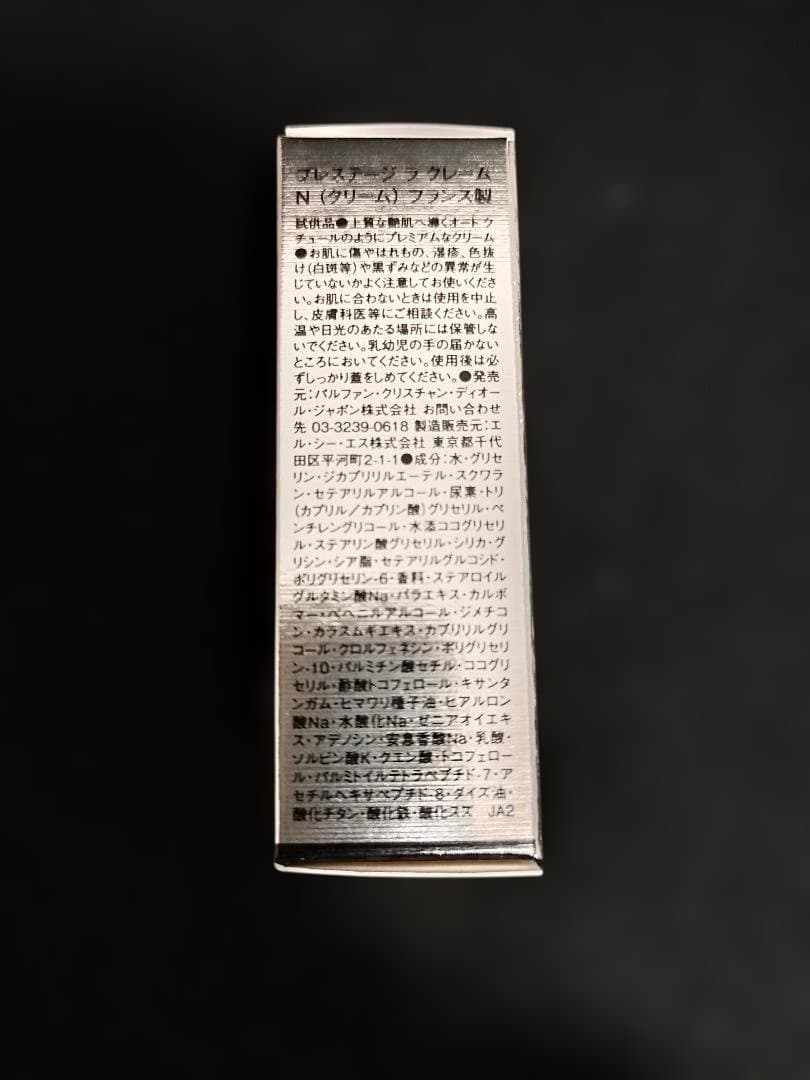 プレステージ ラ クレーム
N (クリーム) フランス製
試供品●上質な艶肌へ導くオートク
チュールのようにプレミアムなクリーム
●お肌に傷やはれもの、湿疹、色抜
け(白斑等)や黒ずみなどの異常が生
じていないかよく注意してお使いくださ
い。お肌に合わないときは使用を中止
し、皮膚科医等にご相談ください。高
温や日光のあたる場所には保管しな
いでください。乳幼児の手の届かない
ところにおいてください。使用後は必
ずしっかり蓋をしめてください。●発売
元:パルファン・クリスチャン・ディオー
ル・ジャポン株式会社 お問い合わせ
先 03-3239-0618 製造販売元:エ
ル・シー・エス株式会社 東京都千代
田区平河町2-1-1●成分:水・グリセ
リン・ジカプリリルエーテル・スクワラ
ン・セテアリルアルコール・尿素・トリ
(カプリル/カプリン酸)グリセリル・ペ
ンチレングリコール・水添ココグリセリ
ル・ステアリン酸グリセリル・シリカ・グ
リシン・シア脂・セテアリルグルコシド・
ポリグリセリン-6・香料・ステアロイル
グルタミン酸Na・バラエキス・カルボ
マー・ベヘニルアルコール・ジメチコ
ン・カラスムギエキス・カプリリルグリ
コール・クロルフェネシン・ポリグリセリ
ン-10・パルミチン酸セチル・ココグリ
セリル・酢酸トコフェロール・キサンタ
ンガム・ヒマワリ種子油・ヒアルロン
酸Na・水酸化Na・ゼニアオイエキ
ス・アデノシン・安息香酸Na・乳酸・
ソルビン酸K・クエン酸・トコフェロー
ル・パルミトイルテトラペプチド-7・ア
セチルヘキサペプチド-8・ダイズ油・
酸化チタン・酸化鉄・酸化スズ JA2